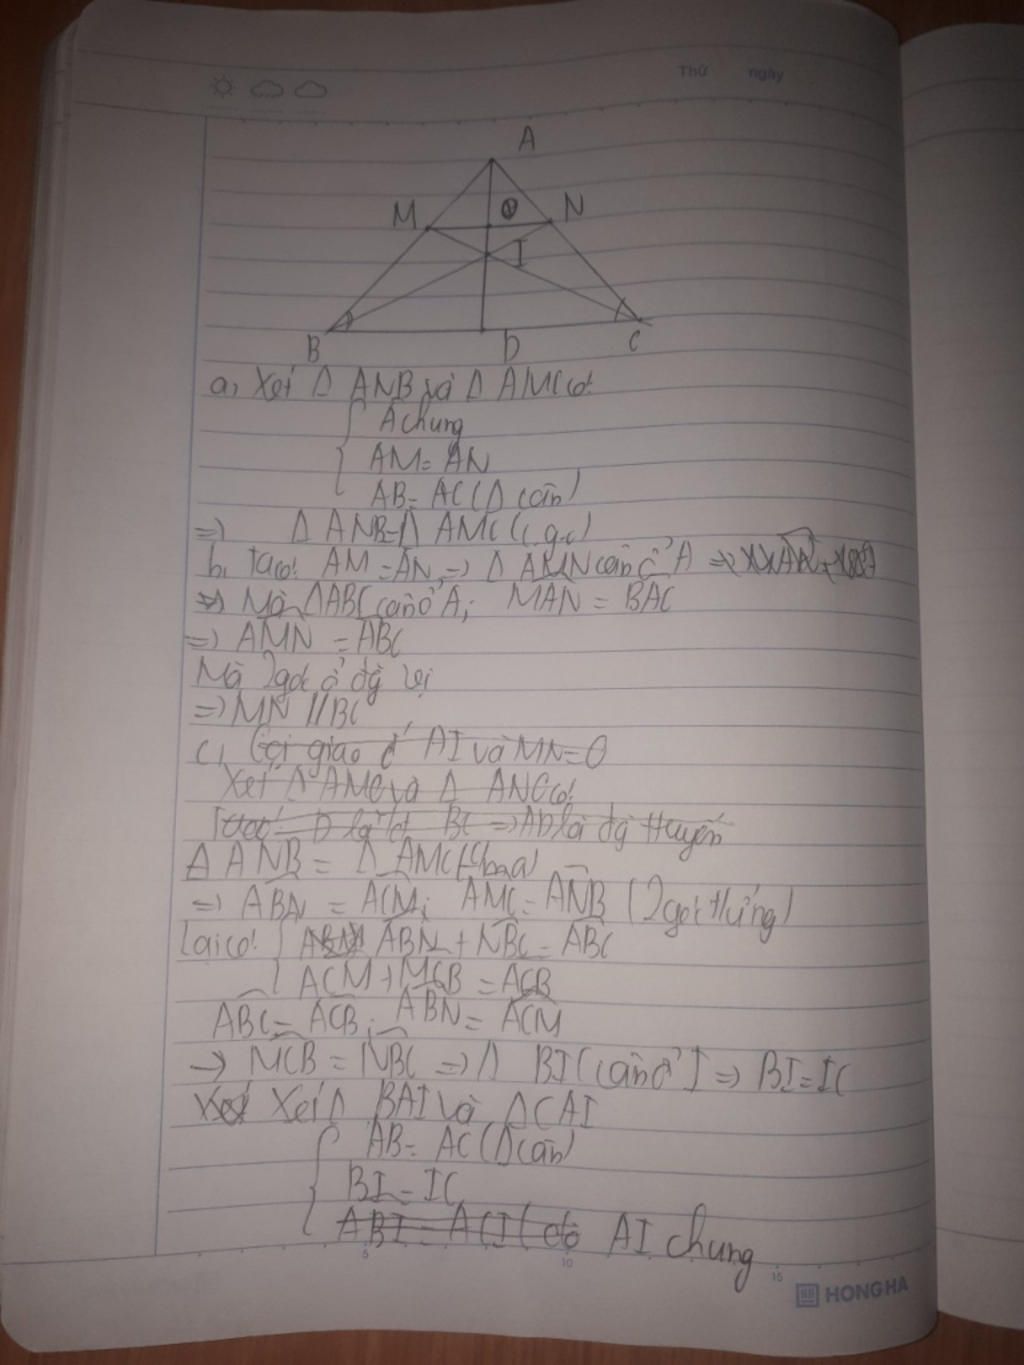 Thứ ngày
A
M O N
I
B D C
a, Xét Δ ANB và Δ AMC có:
A chung
AM = AN
AB = AC (Δ cân)
=) Δ ANB = Δ AMC (c.g.c)
b, Ta có: AM = AN, => Δ AMN cân ở A =>
=> Mà ΔABC cân ở A; MAN = BAC
=) AMN = ABC
Mà 2 góc ở đg vị
=) MN // BC
c, Gọi giao đ' AI và MN = O
Xét Δ AMC và Δ ANC có:
D là BC => AD là đg tuyến
Δ ANB = Δ AMC
=> ABN = ACM; AMC = ANB (2 góc t/ứng)
Lại có: ABN + NBC = ABC
ACM + MCB = ACB
ABC = ACB; ABN = ACM
-> MCB = NBC => Δ BIC cân ở I => BI = IC
Xét Δ BAI và ΔCAI
AB = AC (Δ cân)
BI = IC
ABI = ACI (do AI chung
5 10 15
HONG HA